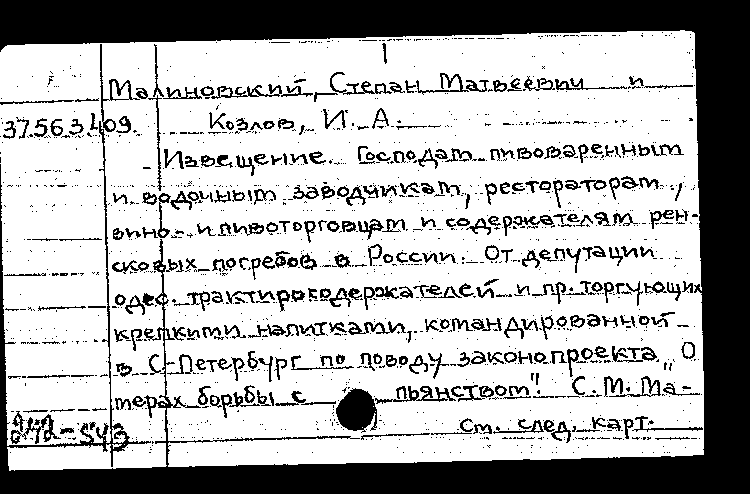 Малиновский, Степан Матвеевич и
37.56.3.409. Козлов, И. А.
Извещение. Господам пивоваренным
и водочным заводчикам, рестораторам,
вино- и пивоторговцам и содержателям рен-
сковых погребов в России. От депутации
одес. трактиросодержателей и пр. торгующих
крепкими напитками, командированной
в С-Петербург по поводу законопроекта „О
мерах борьбы с пьянством". С. М. Ма-
См. след. карт.